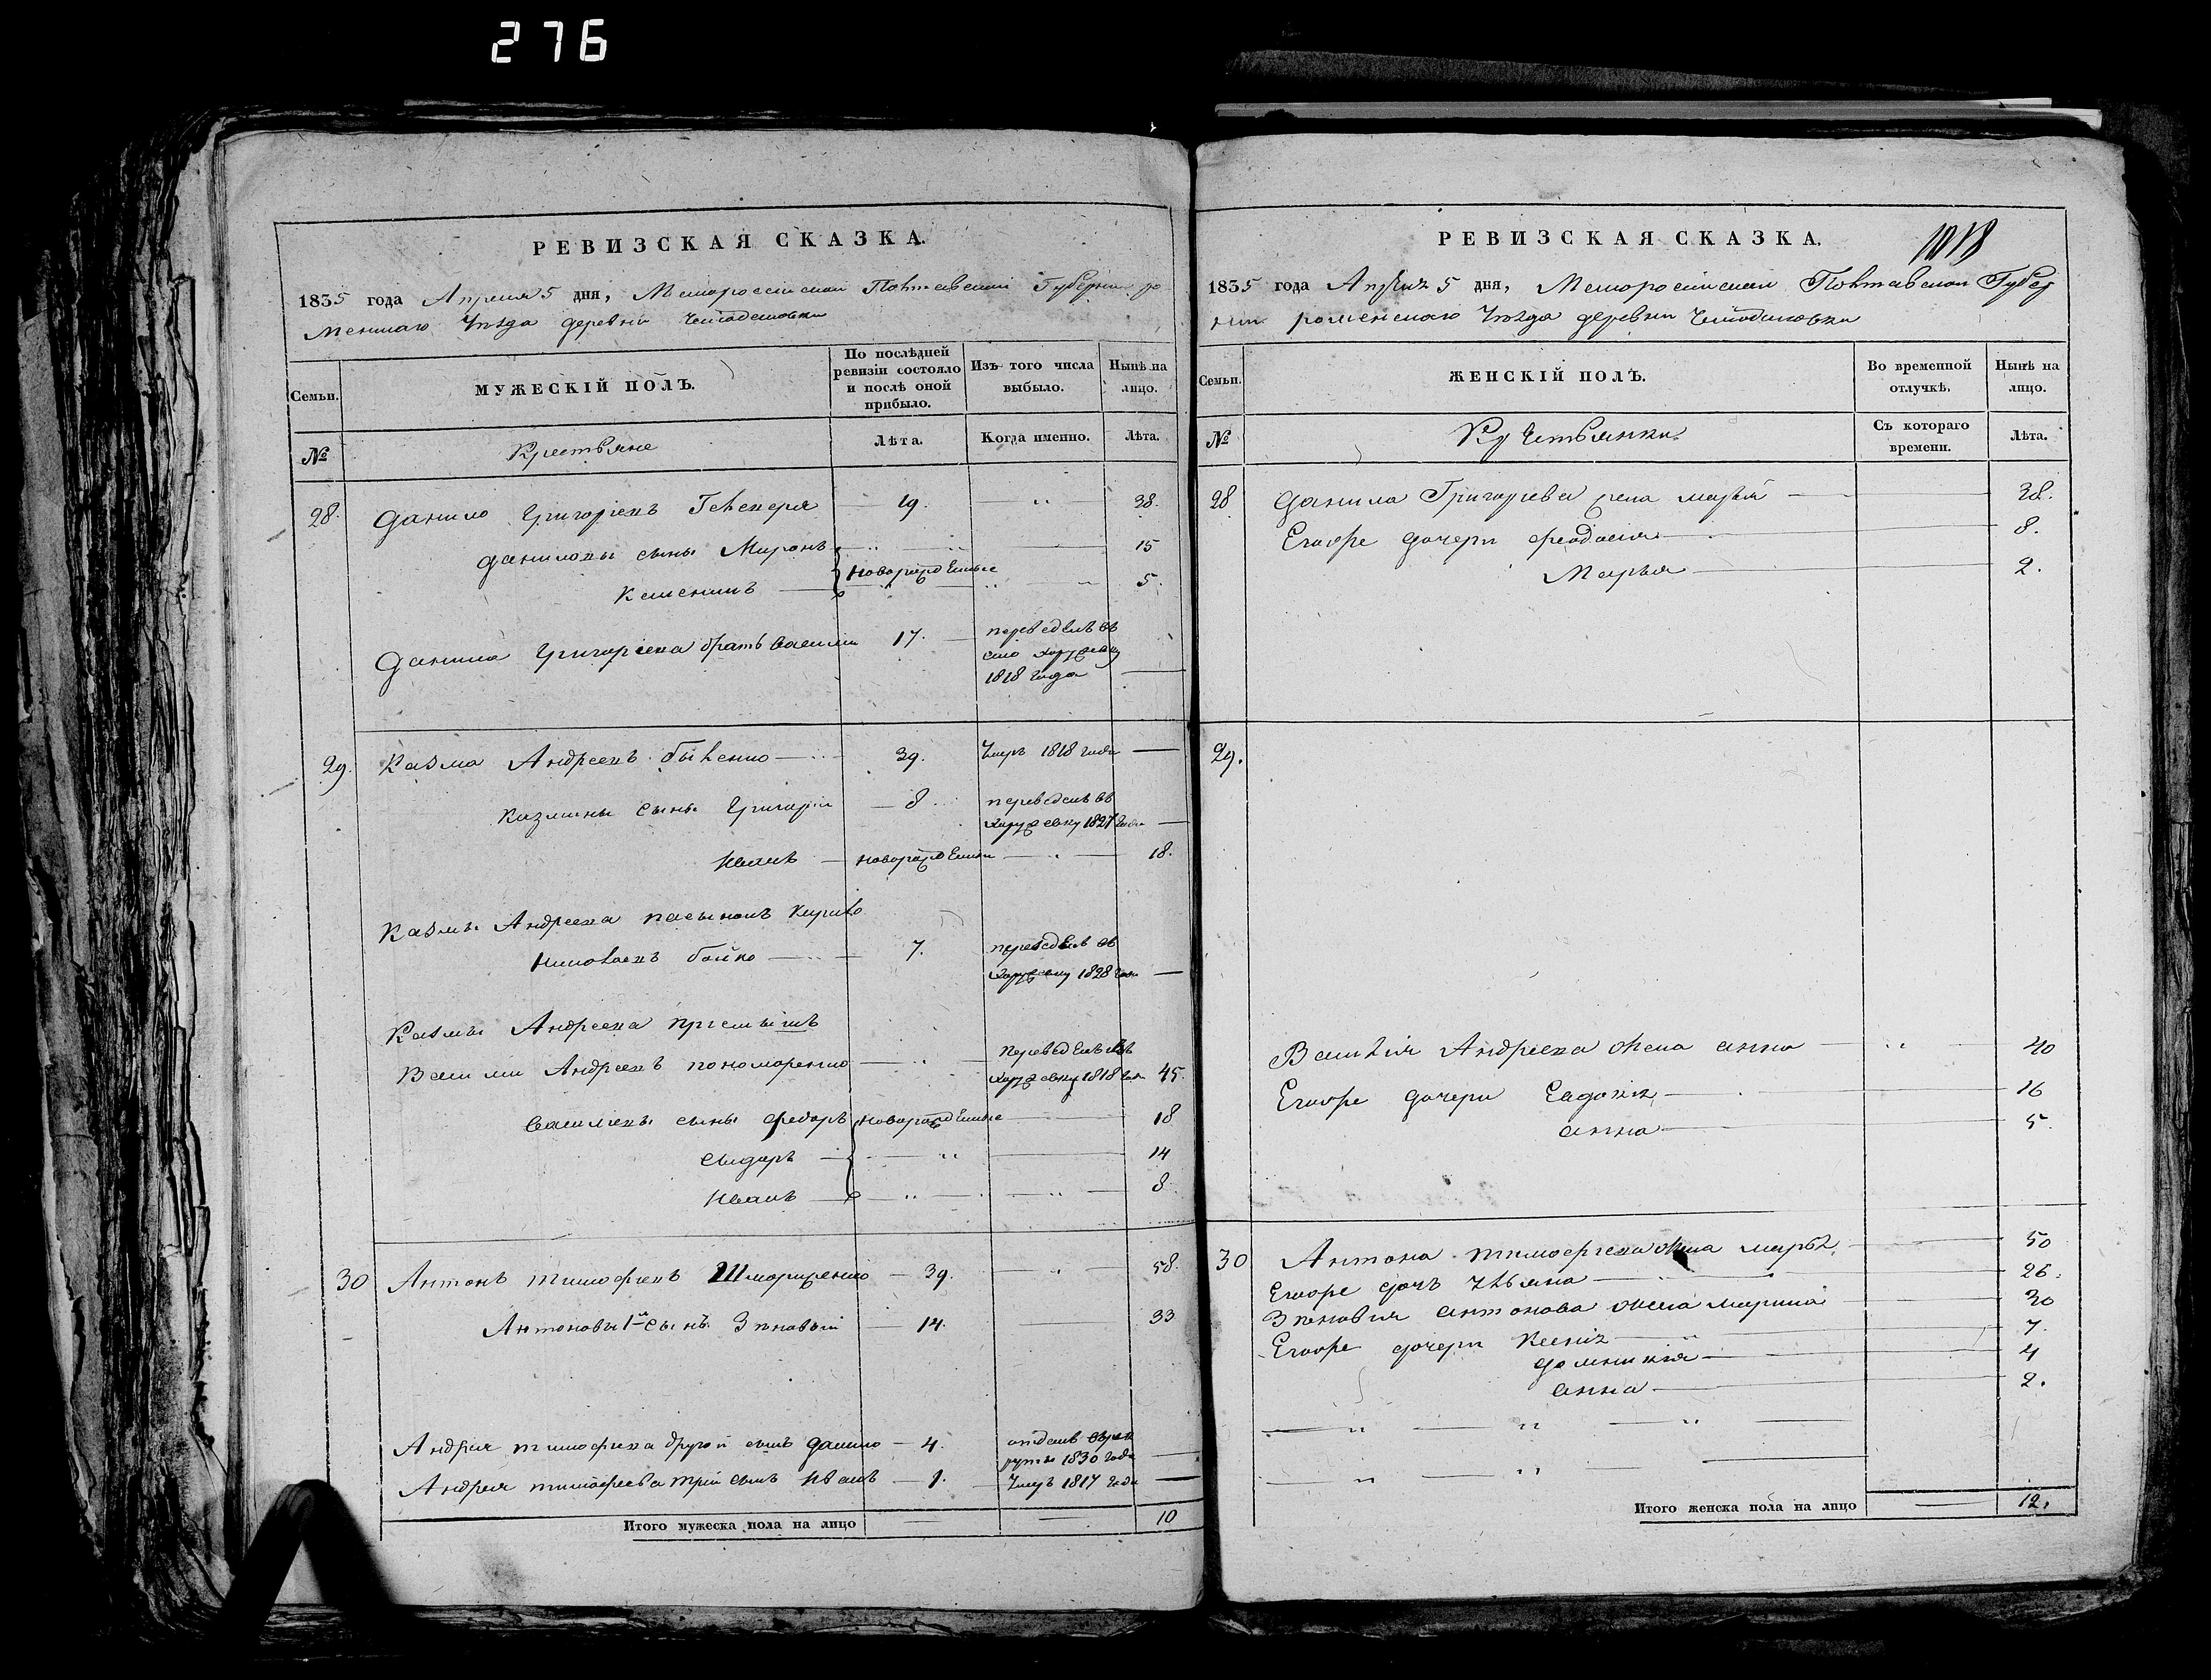 276
РЕВИЗСКАЯ СКАЗКА.
1835 года Апреля 5 дня, Малороссійской Полтавской Губерніи ро
менскаго уѣзда деревни
Семьи.
МУЖЕСКІЙ ПОЛЪ.
По послѣдней ревизіи состояло и послѣ оной прибыло.
Изъ того числа выбыло.
Нынѣ на лицо.
№
Крестьяне
Лѣта.
Когда именно.
Лѣта.
28. Данило Григорьевъ 19. 38.
Даниловы сыны Миронъ 15
новорожденные
5.
Данила Григорьева братъ Василій 17. переведенъ въ
село Хоружевку
1818 года
29. Казма Андреевъ 39. Умръ 1818 года
Казмины сыны Григорій 8 переведенъ въ
Хоружевку 1827 года
Иванъ новорожденный 18.
Казмы Андреева пасынокъ Кирило
Бойко 7. переведенъ въ
Хоружевку 1828 года
Казмы Андреева пріемышъ
Василій Андреевъ пономаренко переведенъ въ
Хоружевку 1818 года 45.
Василіевы сыны Федоръ новорожденные 18
Сидоръ 14
Иванъ 8
30 Антонъ Тимофеевъ 39. 58.
Антоновы 1й сынъ Зѣновій 14. 33
Андрея Тимофеева другой сынъ Данило 4. отданъ въ рек
руты 1830 года
Андрея Тимофеева трій сынъ Иванъ 1. Умръ 1817 года
Итого мужеска пола на лицо 10
1018
РЕВИЗСКАЯ СКАЗКА.
1835 года Апреля 5 дня, Малороссійской Полтавской Губер
ніи роменскаго уѣзда деревни
Семьи.
ЖЕНСКІЙ ПОЛЪ.
Во временной отлучкѣ.
Нынѣ на лицо.
№
Крестьянки
Съ котораго времени.
Лѣта.
28 Данила Григорьева жена марья 38.
Егоже дочери феодосія 8.
Марья 2.
29.
Василія Андреева жена анна 40
Егоже дочери Евдокія 16
анна 5.
30 Антона тимофеева жена марья 50
Егоже дочь Ульяна 26.
Зѣновія антонова жена марина 30
Егоже дочери Ксенія 7.
домникія 4
анна 2.
Итого женска пола на лицо 12.